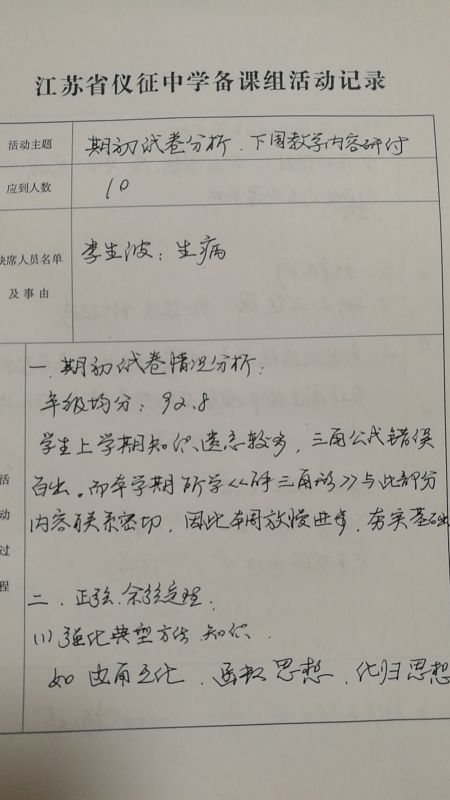 江苏省仪征中学备课组活动记录
活动主题
期初试卷分析、下周教学内容研讨
应到人数
10
缺席人员名单
及事由
李生波：生病
活动过程
一、期初试卷情况分析：
年级均分：92.8
学生上学期知识遗忘较多，三角公式错误
百出。而本学期所学《解三角形》与此部分
内容联系密切，因此本周放慢进度，夯实基础
二、正弦、余弦定理：
(1) 强化典型方法、知识
如 边角互化、函数思想、化归思想